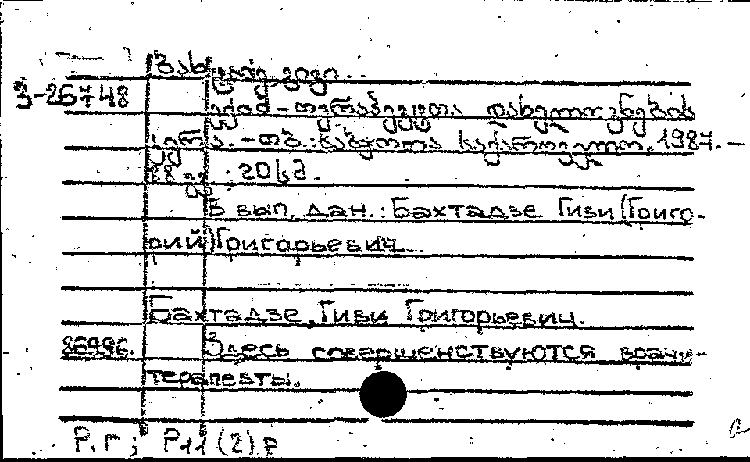 ბახტაძე გივი.
3-26748
ექიმ-თერაპევტთა დახელოვნების
კერა. -თბ.: საბჭოთა საქართველო, 1987. —
88 გვ.; 20სმ.
В вып. дан.: Бахтадзе Гиви (Григо-
рий) Григорьевич.
Бахтадзе, Гиви Григорьевич.
86996. Здесь совершенствуются врачи-
терапевты.
Р.Г; Р11(2)Р